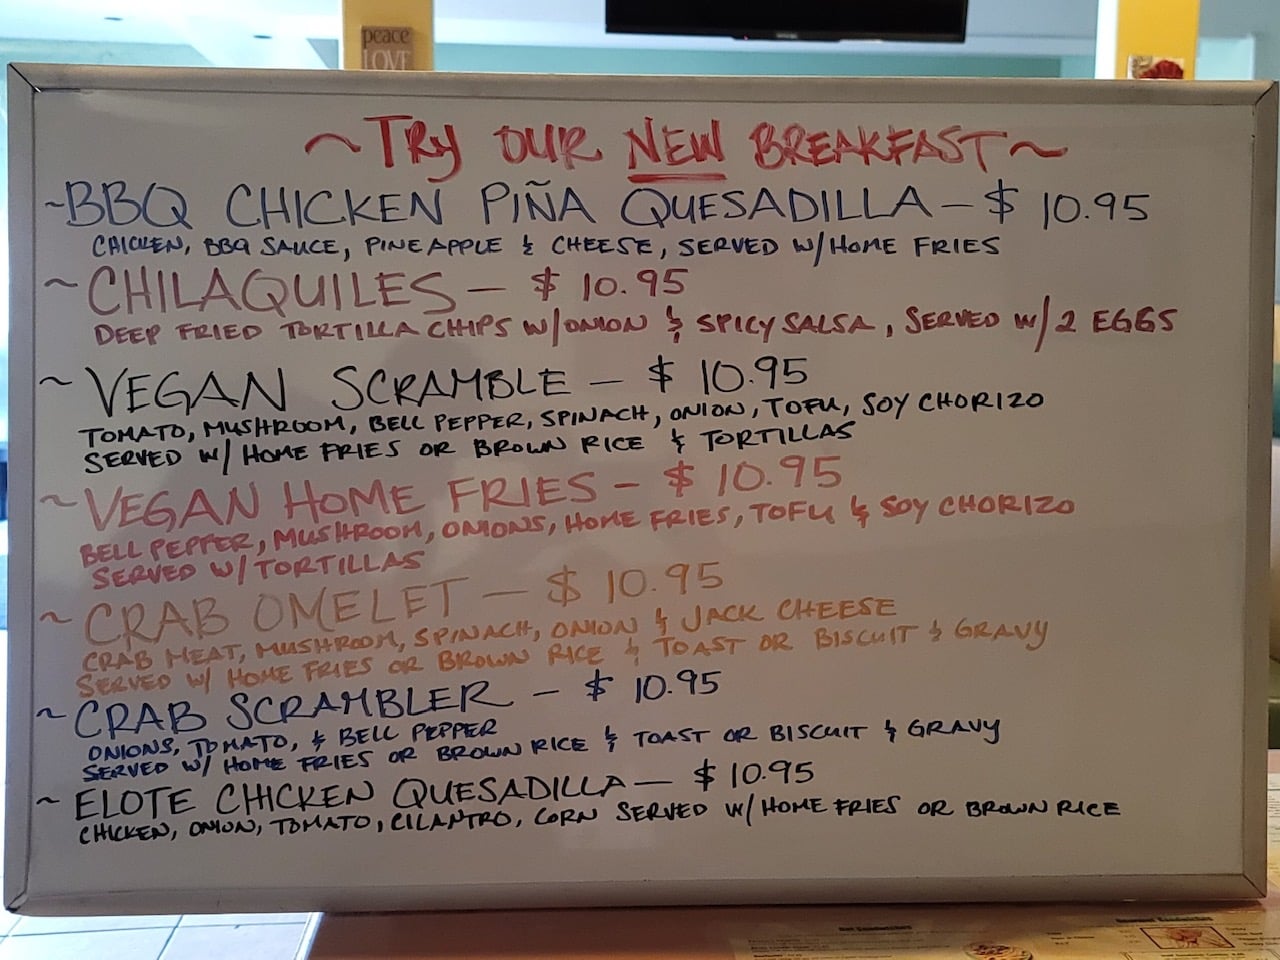 peace
LOVE
~TRY OUR NEW BREAKFAST~
~BBQ CHICKEN PIÑA QUESADILLA - $ 10.95
CHICKEN, BBQ SAUCE, PINEAPPLE & CHEESE, SERVED W/HOME FRIES
~CHILAQUILES - $ 10.95
DEEP FRIED TORTILLA CHIPS W/ONION & SPICY SALSA, SERVED W/2 EGGS
~VEGAN SCRAMBLE - $ 10.95
TOMATO, MUSHROOM, BELL PEPPER, SPINACH, ONION, TOFU, SOY CHORIZO
SERVED W/ HOME FRIES OR BROWN RICE & TORTILLAS
~VEGAN HOME FRIES - $ 10.95
BELL PEPPER, MUSHROOM, ONIONS, HOME FRIES, TOFU & SOY CHORIZO
SERVED W/TORTILLAS
~CRAB OMELET - $ 10.95
CRAB MEAT, MUSHROOM, SPINACH, ONION & JACK CHEESE
SERVED W/ HOME FRIES OR BROWN RICE & TOAST OR BISCUIT & GRAVY
~CRAB SCRAMBLER - $ 10.95
ONIONS, TOMATO, & BELL PEPPER
SERVED W/ HOME FRIES OR BROWN RICE & TOAST OR BISCUIT & GRAVY
~ELOTE CHICKEN QUESADILLA - $10.95
CHICKEN, ONION, TOMATO, CILANTRO, CORN SERVED W/HOME FRIES OR BROWN RICE
Hot Sandwiches